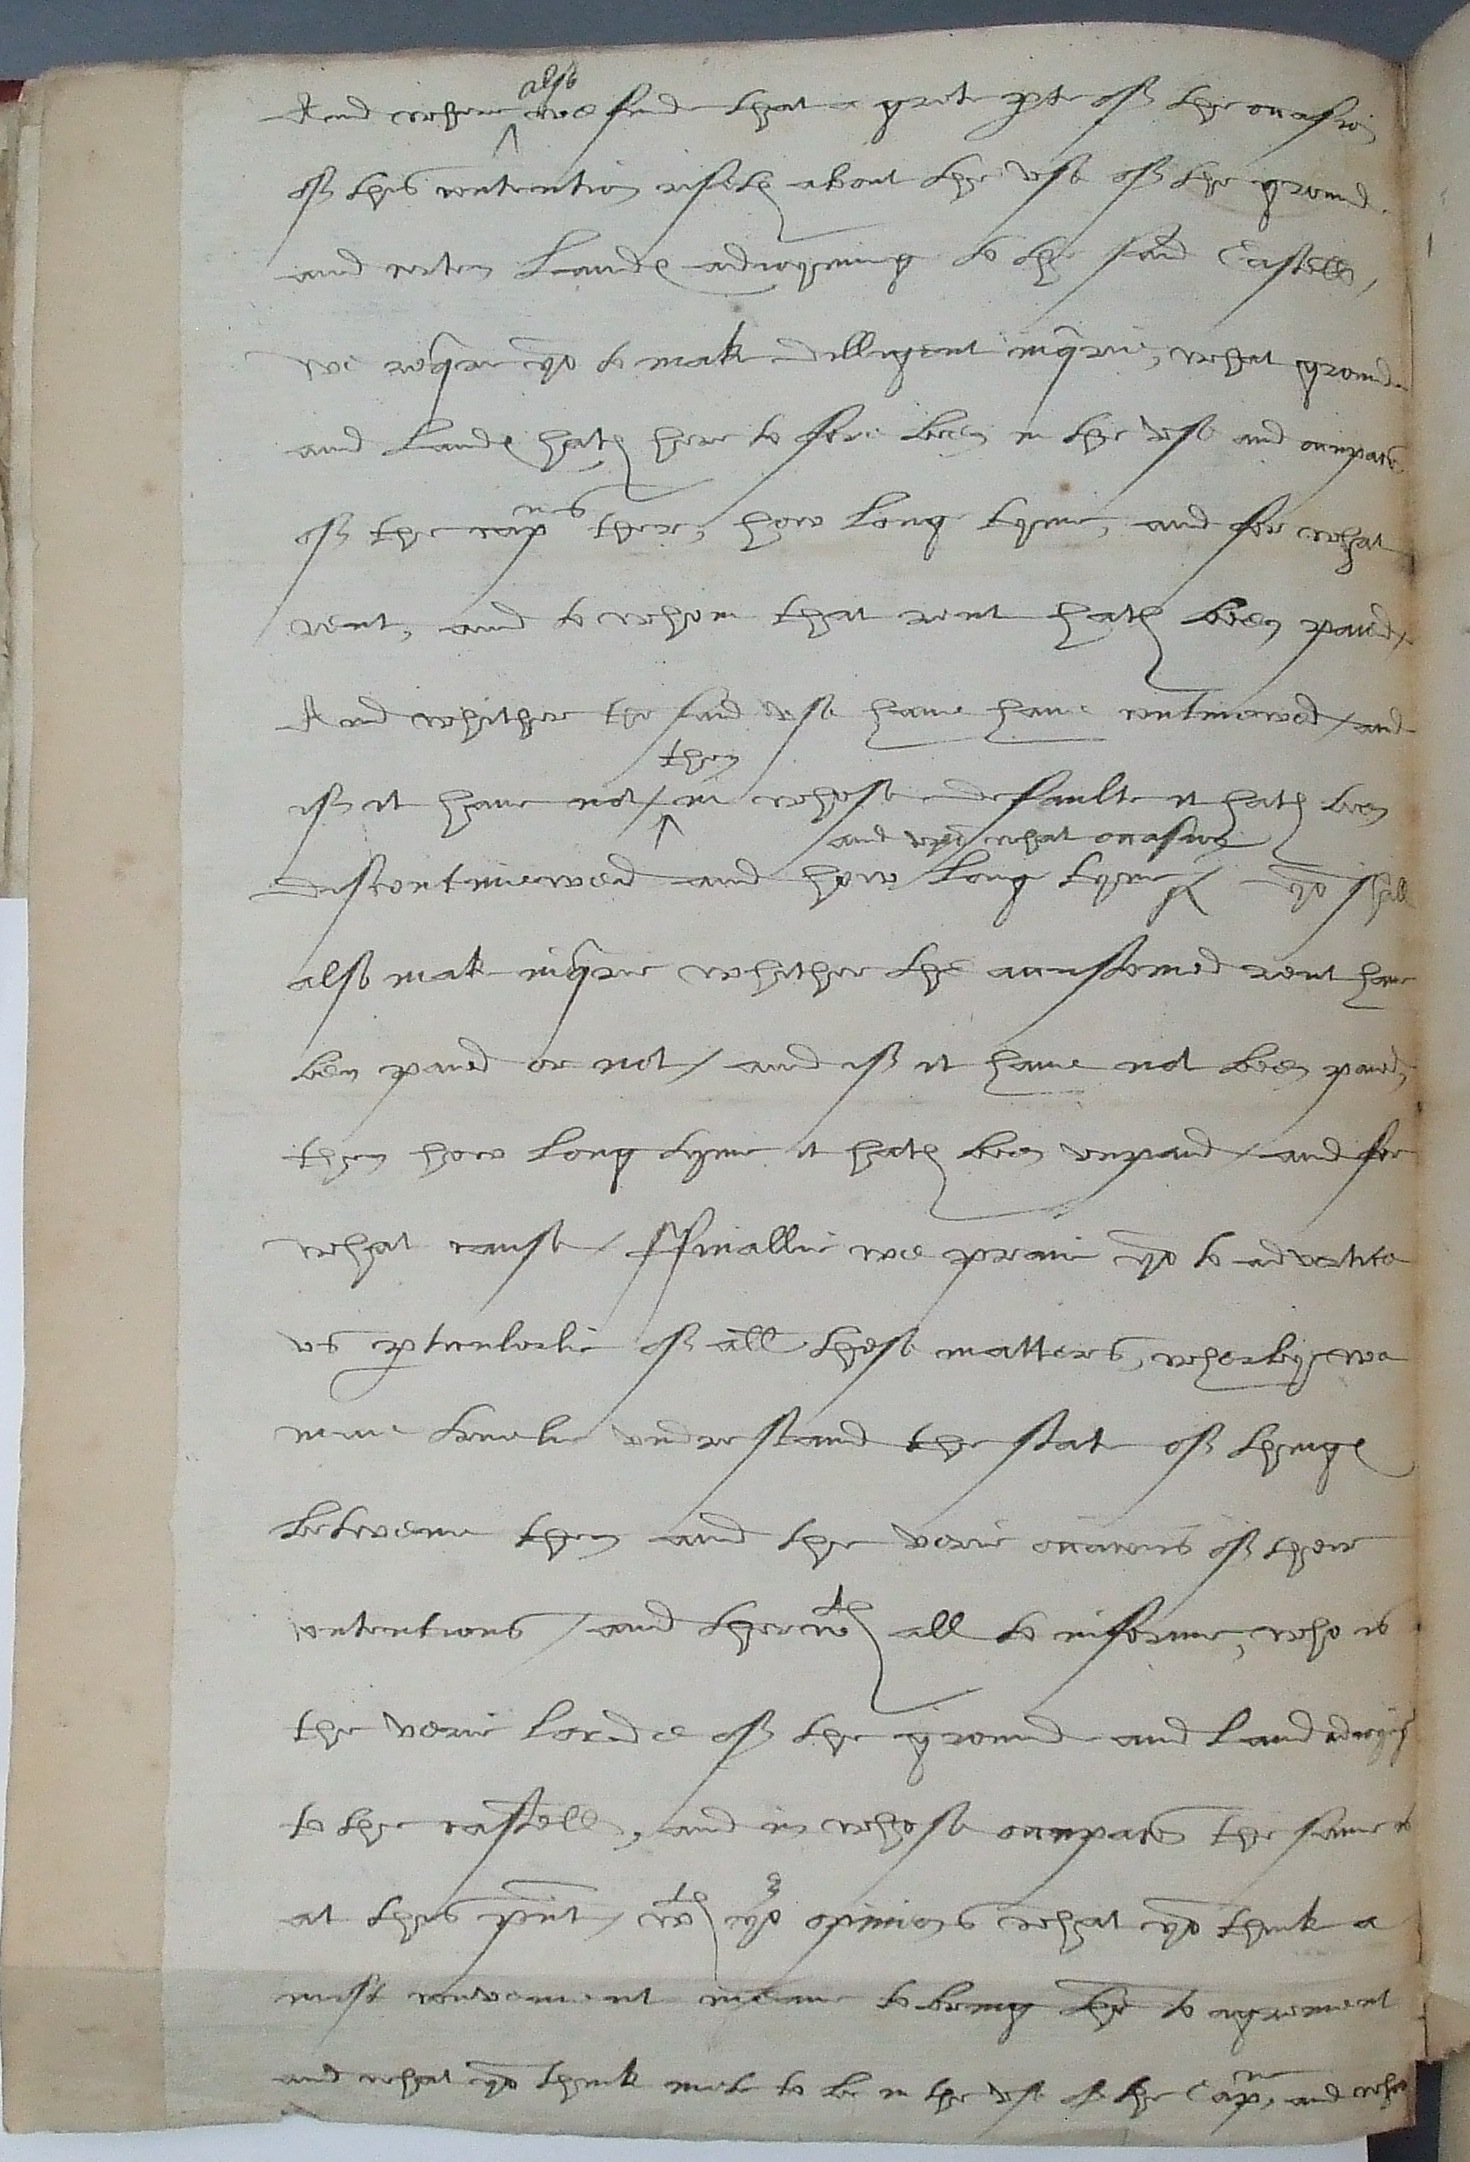 also
And where we finde that a grete pte of the occasion
of this contention riseth about the use of the ground
and certen Lands adioyning to the said Castell,
we reqre yo to mak dilligent inqrie, what ground
and Lands hath here to fore been in the use and occupacon
of the capns there, how long tyme, and for what
rent, and to whom that rent hath been paied,
And whither the said use have have continewed / and
then
if it have not / in whose defaulte it hath ben
and upon what occasion
discontinewed and how long tyme / yo shall
also mak inqrie whither the accustomed rent have
ben paied or not / and if it have not been paied,
then how long tyme it hath ben unpaid / and for
what cause / ffinallie we praie yo to advertice
us pticulerlie of all these matters, wherbye we
maie trewlie understand the state of things
betweene them and the verie occacons of their
contentions / and therwth all to informe, who is
the verie lorde of the ground and Land adioyng
to the castell, and in whose occupacon the same is
at this pnt / wth yor opinions what yo think a
most convenient meane to bring the to agrement
and what yo think mete to be in the use of the Capn, and what